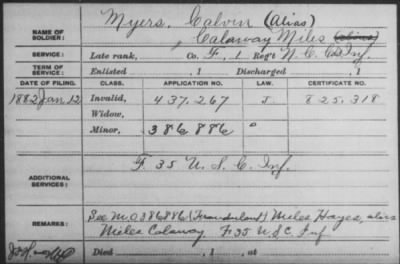 Myers, Calvin (alias)
NAME OF SOLDIER: Calaway Miles (alias)
SERVICE: Late rank, Co. F, 1 Reg't N. C. Cd Inf.
TERM OF SERVICE: Enlisted , 1 Discharged , 1
DATE OF FILING. CLASS. APPLICATION NO. LAW. CERTIFICATE NO.
1882 Jan 12 Invalid, 437.267 J. 825.318
Widow,
Minor, 386886
ADDITIONAL SERVICES: F. 35 U. S. C. Inf.
REMARKS: See M.O 386886 (Fraudulent) Miles Hayes, alias
Miles Calaway. F. 35 U S C Inf
Died , 1 , at